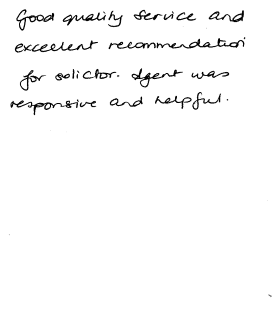 Good quality service and
excellent recommendation
for solictor. Agent was
responsive and helpful.